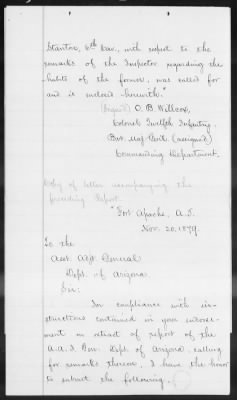 Stanton, 6th Cav., with respect to the
remarks of the Inspector regarding the
habits of the former, was called for
and is inclosed herewith."
(Signed) O. B. Willcox,
Colonel Twelfth Infantry,
Bvt. Maj. Genl. (assigned)
Commanding Department.
Copy of letter accompanying the
preceding Report.
"Fort Apache, A. T.
Nov. 20, 1879.
To the
Asst. Adjt. General
Dept. of Arizona
Sir:
In compliance with in-
structions contained in your indorse-
ment on extract of report of the
A. A. I. Gen. Dept. of Arizona, calling
for remarks thereon, I have the honor
to submit the following.